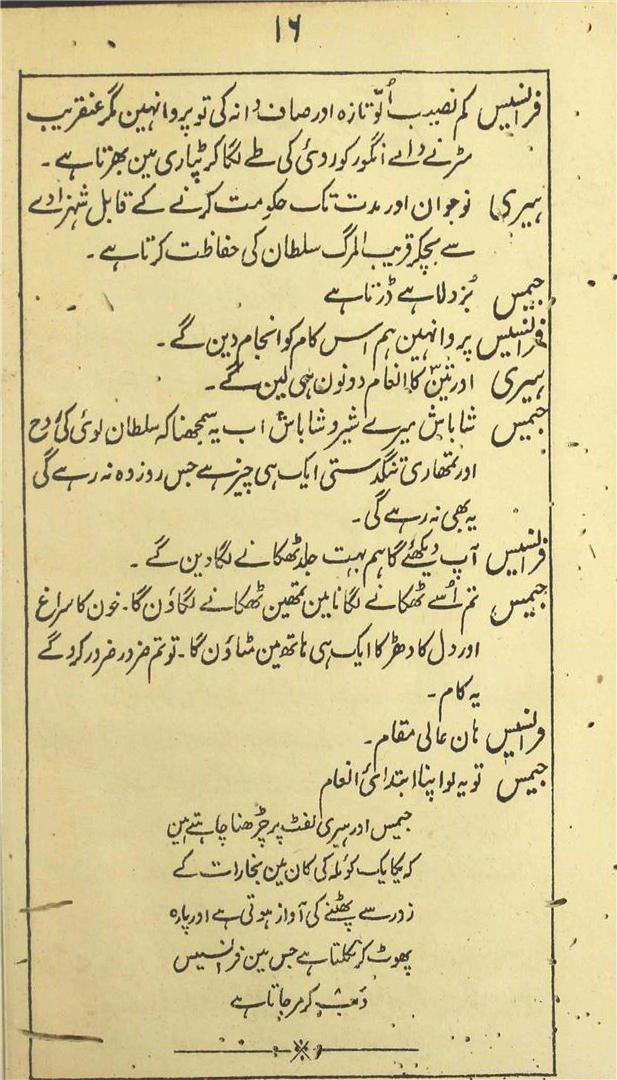 ۱۶
فرانسیس کم نصیب اُلّو تازہ اور صاف دانہ کی تو پروا نہین مگر عنقریب
سڑنے والے انگور کو روئی کی طے لگا کر پٹاری مین بھرتا ہے۔
ہیری نوجوان اور مدت تک حکومت کرنے کے قابل شہزادے
سے بچکر قریب المرگ سلطان کی حفاظت کرتا ہے۔
جیمس بُزدلا ہے ڈرتا ہے
فرانسیس پروا نہین ہم اس کام کو انجام دین گے۔
ہیری اور تینّ کا انعام دونون ہی لین گے۔
جیمس شاباش میرے شیرو شاباش اب یہ سمجھنا کہ سلطان لوئی کی روح
اور تمھاری تنگدستی ایک ہی چیز ہے جس روز وہ نہ رہے گی
یہ بھی نہ رہے گی۔
فرانسیس آپ دیکھئے گا ہم بہت جلد ٹھکانے لگا دین گے۔
جیمس تم اُسے ٹھکانے لگانا مین تمھین ٹھکانے لگاؤن گا۔ خون کا سراغ
اور دل کا دھڑکا ایک ہی ہاتھ مین مٹاؤن گا۔ تو تم ضرور ضرور کرو گے
یہ کام۔
فرانسیس ہان عالی مقام۔
جیمس تو یہ لو اپنا ابتدائی انعام
جیمس اور ہیری لفٹ پر چڑھنا چاہتے ہین
کہ یکایک کوئلہ کی کان مین بخارات کے
زور سے پھٹنے کی آواز ہوتی ہے اور پارہ
پھوٹ کر نکلتا ہے جس مین فرانسیس
کر مر جاتا ہے